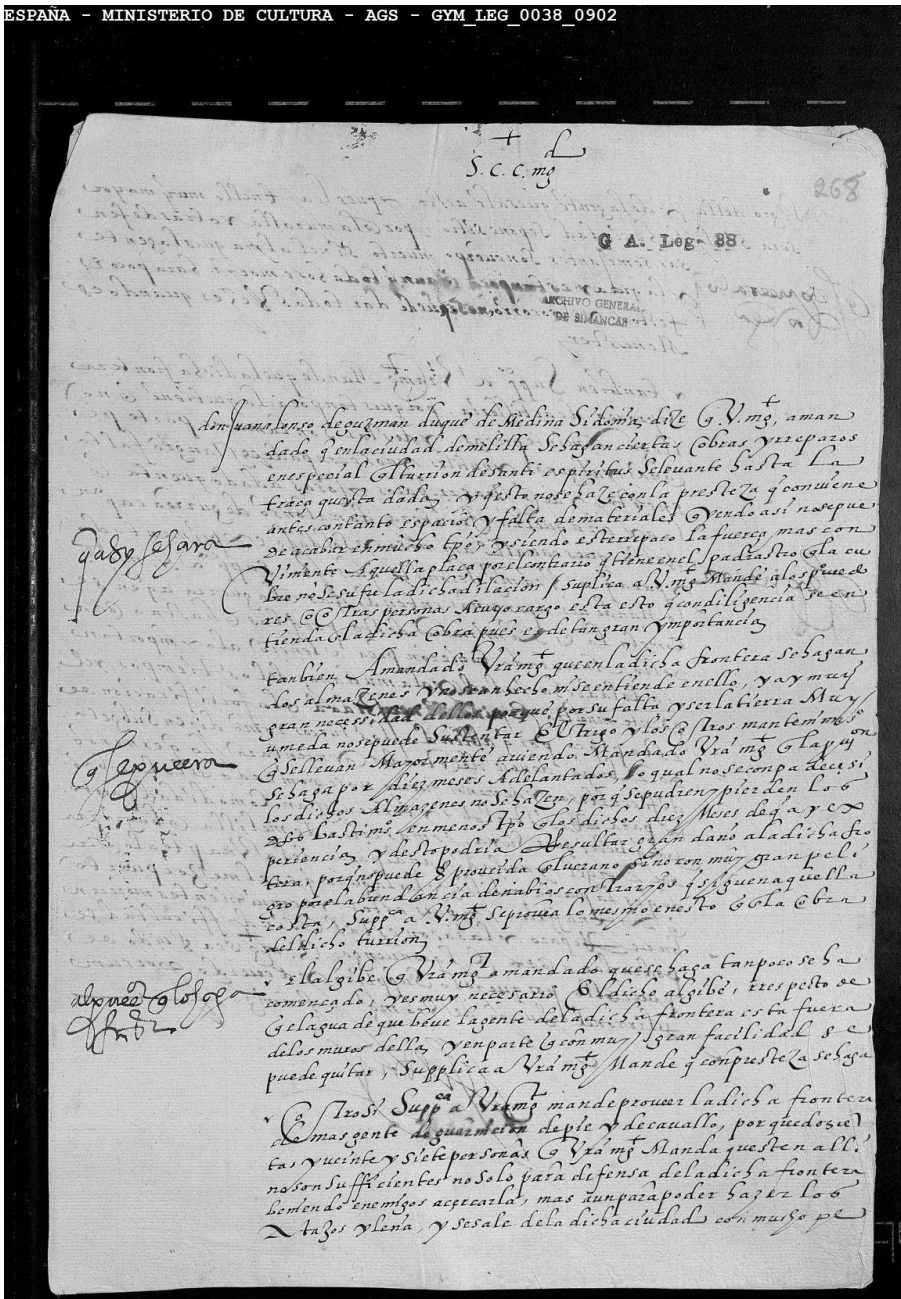 ESPAÑA - MINISTERIO DE CULTURA - AGS - GYM_LEG_0038_0902
+
S. C. C. mgd
268
G A. Leg- 38
ARCHIVO GENERAL
DE SIMANCAS
don Juan alonso de guzman duque de Medina Sidonia, dize q V. mgt, a man
dado q en la ciudad de melilla se hagan ciertas obras y rreparos
en especial q l turrion de santi espiritus se levante hasta la
traça questa dada, y questo no se haze con la presteza q conviene
antes con tanto espacio, y falta de materiales q yendo asi no se pue
de acabar en mucho tpo, y siendo este rreparo la fuerça mas con
viniente aquella plaça por el contrario q tiene en el padrastro q la cu
bre no se sufre la dicha dilacion / suplica a V. mgt Mande a los
res o otras personas a cuyo cargo esta esto q con diligencia se en
tienda q la dicha obra pues es de tan gran ymportancia
q asy se hara
tanbien A mandado Vra mgt que en la dicha frontera se hagan
dos almazenes, y no se an hecho ni se entiende en ello, y ay muy
gran necessidad dellos porque por su falta y ser la tierra Muy
umeda no se puede Sustentar el trigo y los otros mantenimos
q se llevan Mayormente aviendo Mandado Vra mgt q la provion
se haga por diez meses Adelantados, lo qual no se conpadece si
los dichos Almazenes no se hazen, porq se pudren y pierden los
bastimos en menos tpo q los dichos diez Meses de q ay ex
periencia, y desto podria Resultar gran daño a la dicha fro
tera, porq no puede ser proveida q l verano sino con muy gran peli
gro por el abundancia de nabios contrarios q siguen aquella
costa, Suppca a V. mgt se provea lo mesmo en esto q la obra
del dicho turrion
q se provera
El algibe q Vra mgt a mandado que se haga tanpoco se ha
començado, y es muy necesario el dicho algibe, rrespecto de
q el agua de que beve la gente de la dicha frontera esta fuera
de los muros della, y en parte q con muy gran facilidad se
puede quitar, Supplica a Vra mgt Mande q con presteza se haga
Otrosi Suppca a Vra mgt mande proveer la dicha frontera
de mas gente de guarnicion de pie y de cavallo, porque dozie
tas y veinte y siete personas q Vra mgt Manda questen alli
no son sufficientes no solo para defensa de la dicha frontera
biniendo enemigos a cercarla, mas aun para poder hazer los
atajos y leña, y se sale de la dicha ciudad con mucho pe